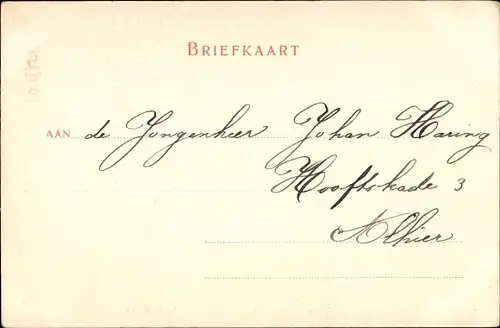 BRIEFKAART
AAN de Jongenheer Johan Haring
Hooftskade 3
Alhier